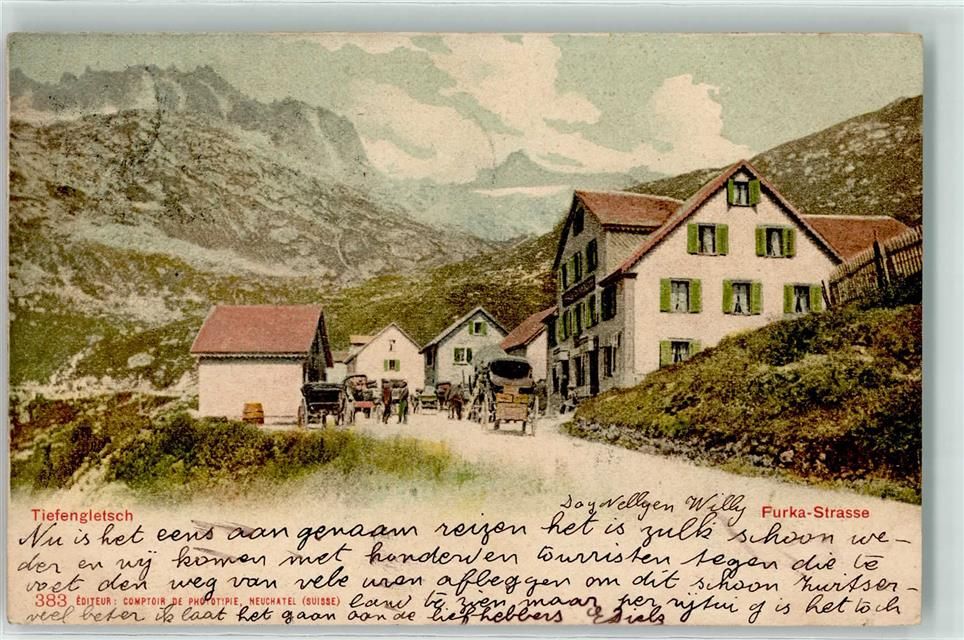 Tiefengletsch
Furka-Strasse
Dag Nellyen Willy
Nu is het eens aan genaam reizen het is zulk schoon we-
der en wij komen met honderden tourristen tegen die te
voet den weg van vele uren afleggen om dit schoon Zwitser-
383 ÉDITEUR: COMPTOIR DE PHOTOTYPIE, NEUCHATEL (SUISSE)
land te zien maar per rijtui g is het toch
veel beter ik laat het gaan aan de liefhebbers